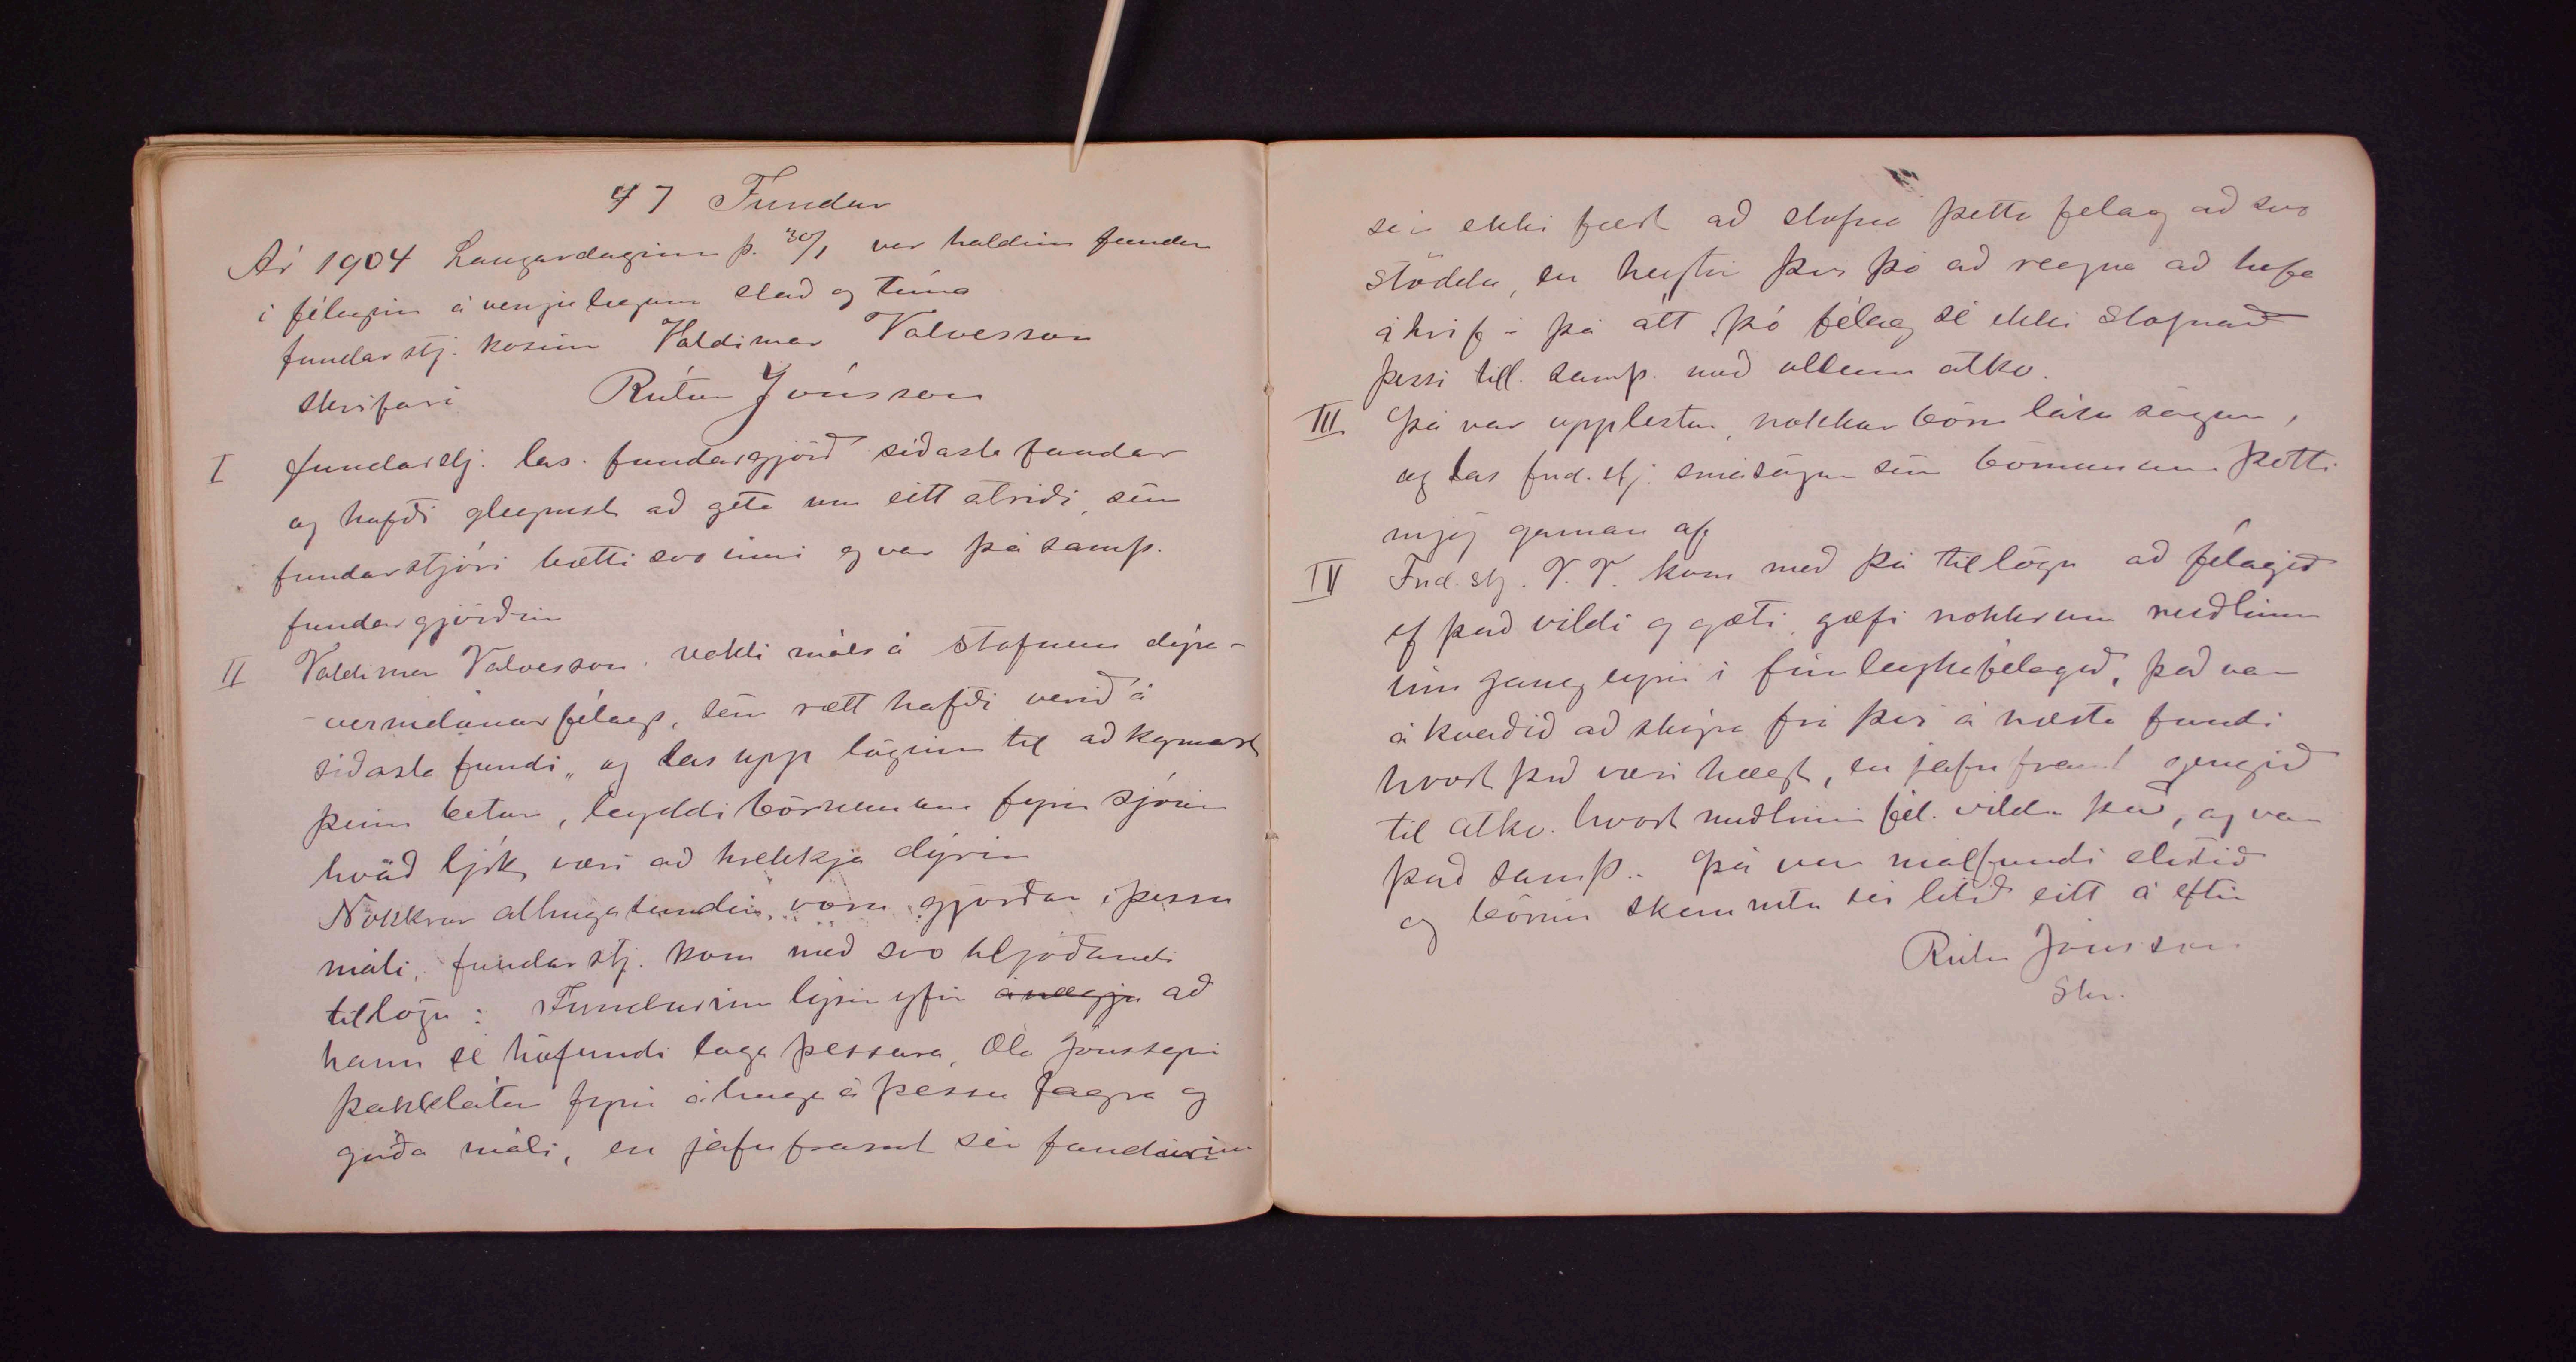 47 Fundur
Ár 1904 Laugardaginn þ. 30/1 var haldin fundur
í félaginu á venjulegum stað og tíma
fundarstj. kosinn Valdimar Valvesson
skrifari Rútur Jónsson
I fundarstj. las. fundargjörð síðasta fundar
og hafði gleymst að geta um eitt atriði, sem
fundarstjóri bætti svo inni og var þá samþ.
fundargjörðin
II Valdimar Valvesson. vakti máls á stofnun dýra-
-verndunarfélags, sem rætt hafði verið á
síðasta fundi, og las upp lögin til að kynnast
þeim betur, leyddi börnunum fyrir sjónir
hvað ljótt væri að hrekkja dýrin
Nokkrar athugasemdir voru gjörðar í þessu
máli, fundarstj. kom með svo hljóðandi
tillögu: Fundurinn lýsir yfir ánægju að
hann sé höfundi laga þessara, Óla Jónssyni
þakklátur fyrir áhuga á þessu fagra og
góða máli, en jafnframt sér fundurinn
sér ekki fært að stofna þetta felag að svo
stöddu, en heytir þvi þó að reyna að hafa
áhrif í þá átt þó félag sé ekki stofnað
þessi till. samþ. með öllum atkv.
III Þá var upplestur, nokkur börn lásu sögur,
og las fnd. stj. smásögur sem börnunum þótti
mjög gaman af
IV Fnd. stj. V. V. kom með þá tillögu að félagið
ef það vildi og gæti, gæfi nokkrum meðlimum
inn gangeyri í félagið, það var
ákveðið að skýra frá því á næsta fundi
hvort það væri hægt, en jafnframt gengið
til atkv. hvort meðlimir fél. vildu það, og var
það samþ.. Þá var málfundi slitið
og börnin skemmtu sér lítið eitt á eftir
Rútur Jónsson
Skr.